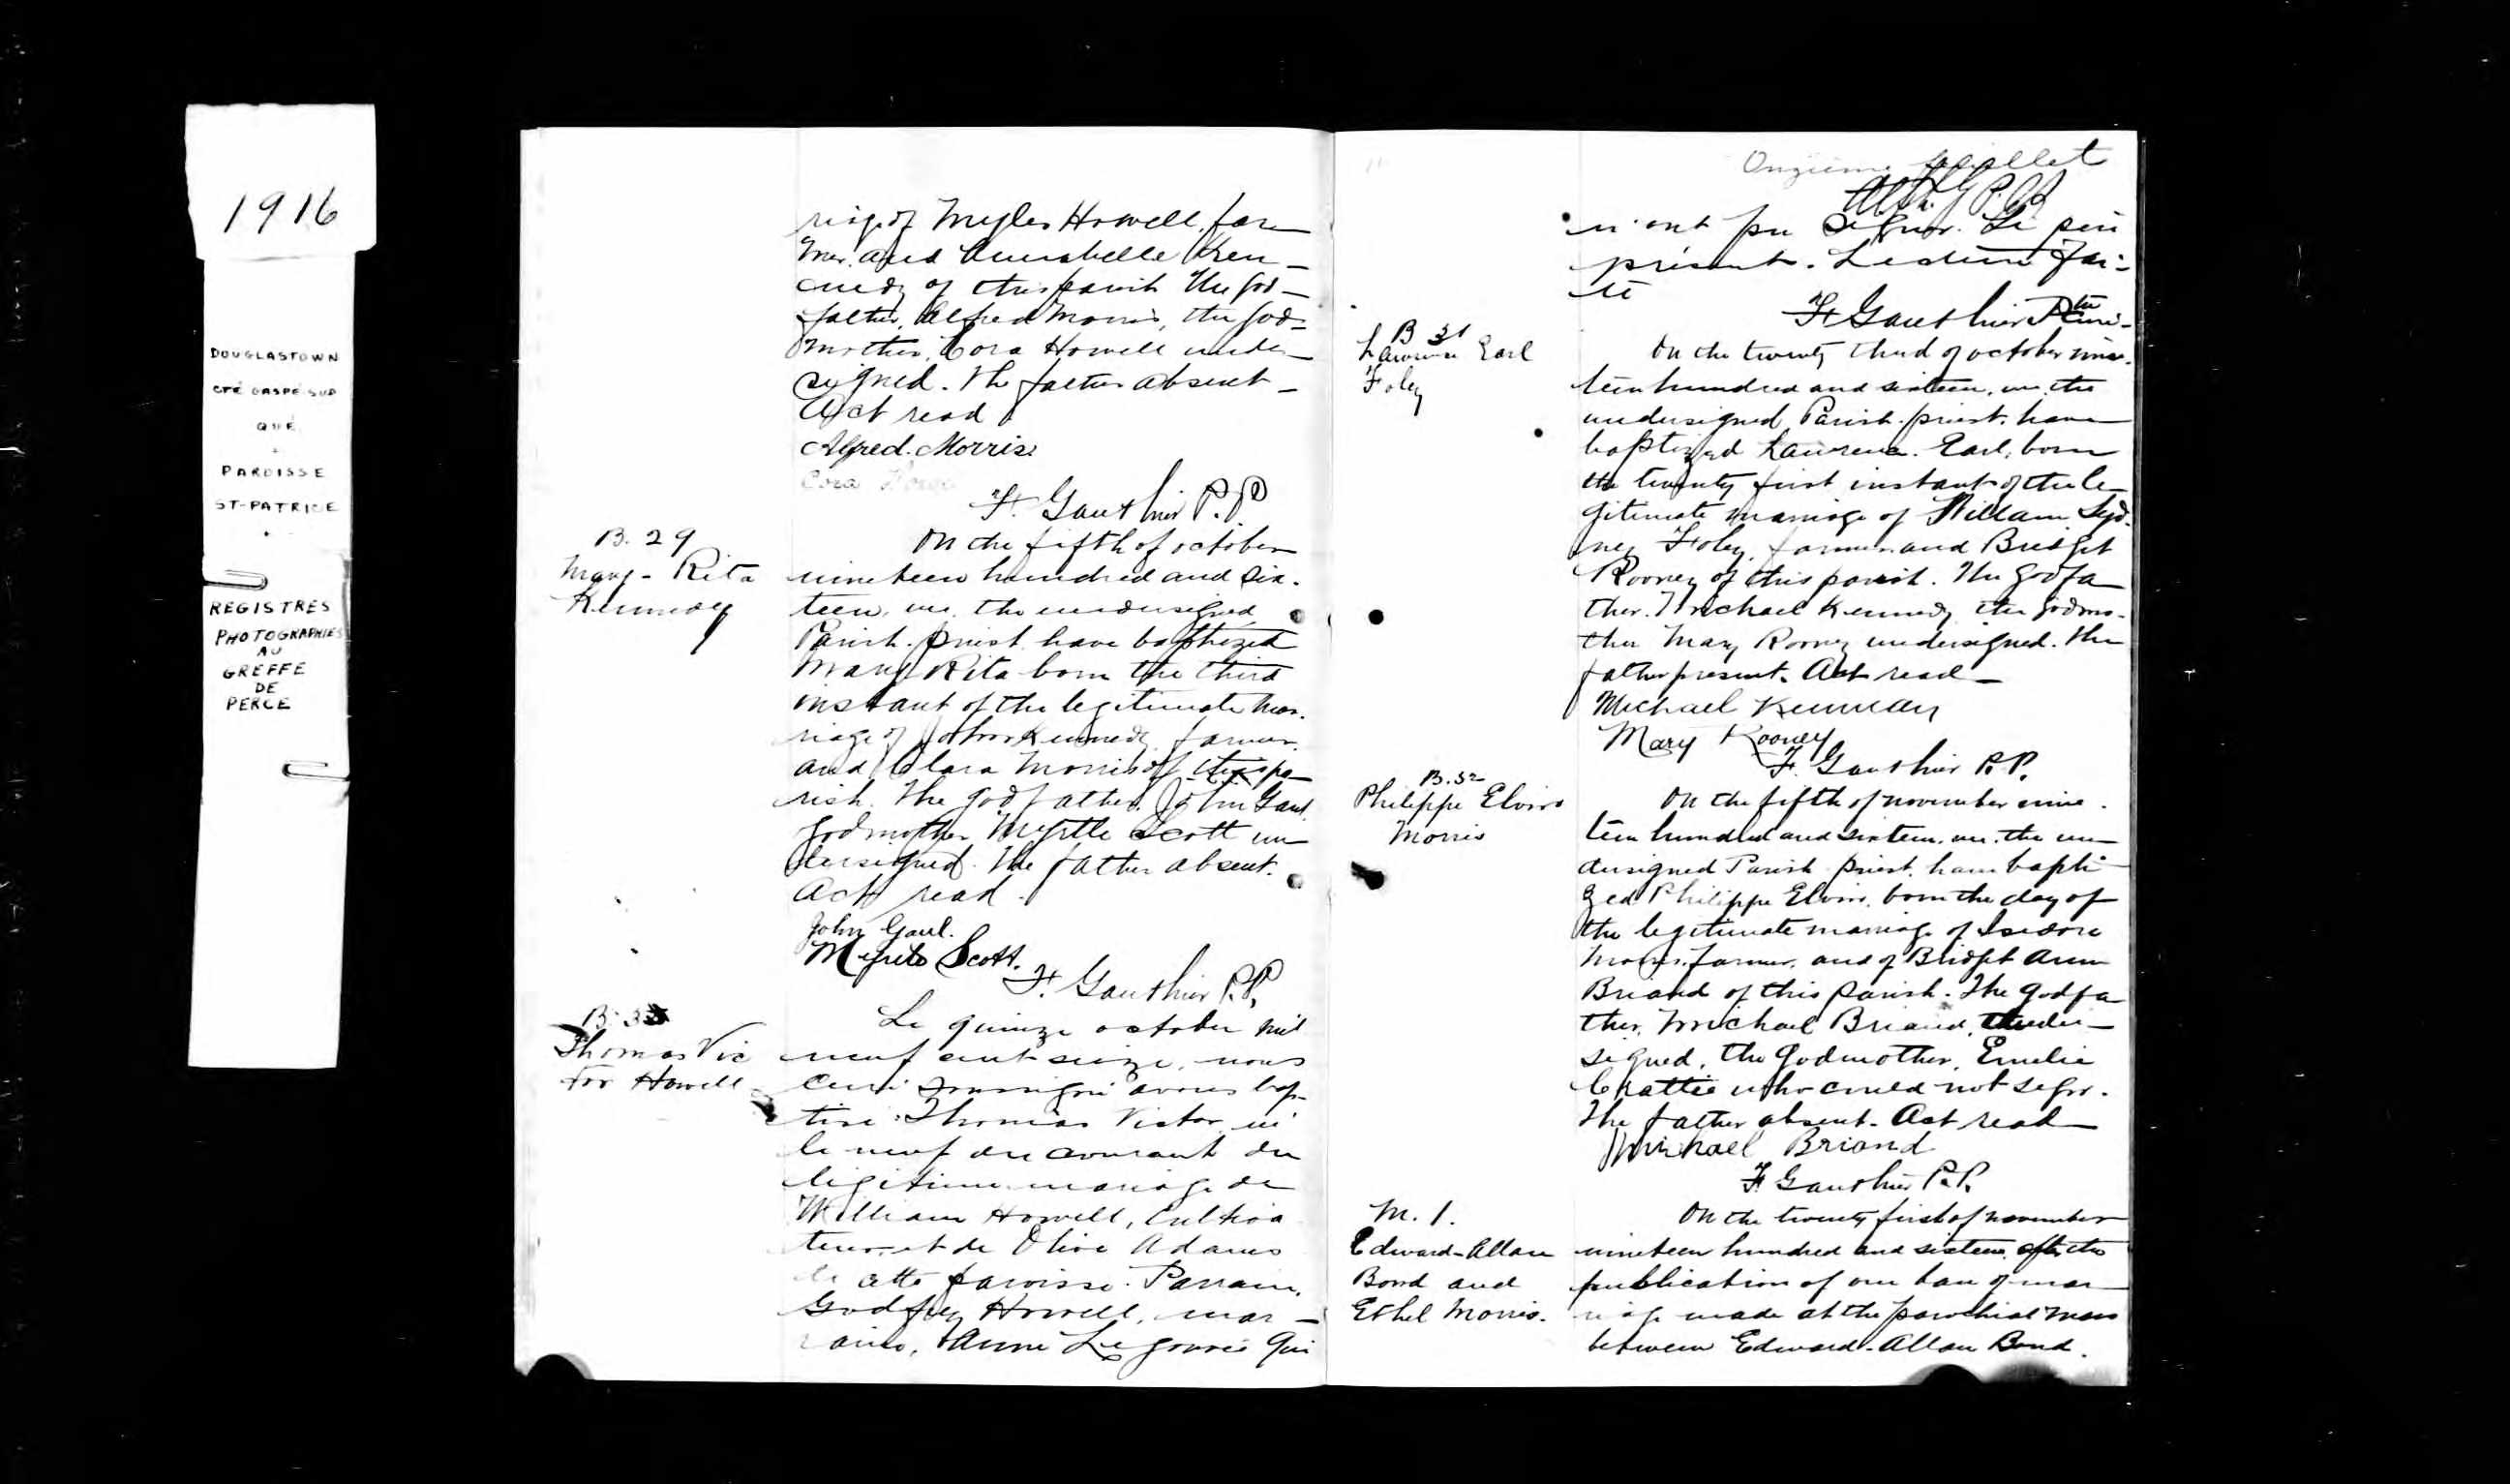 1916
DOUGLASTOWN
CTÉ GASPÉ SUD
QUÉ.
PAROISSE
ST-PATRICE
REGISTRES
PHOTOGRAPHIÉS
AU
GREFFE
DE
PERCE
riage of Myles Howell, far
mer. and Annabelle Ken-
nedy of this parish The god-
father, Alfred Morris, the god-
mother, Cora Howell under-
signed. The father absent-
Act read
Alfred. Morris.
Cora
F. Gauthier P.P
B. 29
Mary-Rita
Kennedy
On the fifth of october
nineteen hundred and six-
teen, we, the undersigned
Parish-priest have baptized
Mary Rita born the third
instant of the legitimate mar-
riage of John Kennedy, farmer.
and Clara Morris of this pa-
rish. The godfather. John Gaul,
godmother Myrtle Scott un
dersigned. The father absent.
Act read.
John Gaul.
Myrtle Scott.
F. Gauthier P.P.
B. 30
Thomas Vic
tor Howell
Le quinze october mil
neuf cent seize, nous
curé soussigné avons bap-
tisé Thomas Victor né
le neuf du courant du
légitime mariage de
William Howell, cultiva
teur et de Olive Adams
de cette paroisse. Parrain,
Godfrey Howell, mar-
raine, Anne Le qui
Onzième feuillet
P.C.S
n'ont pu signer. Le père
présent. Lecture fai-
te
F. Gauthier Ptre curé-
B 31
Lawrence Earl
Foley
On the twenty third of october nine-
teen hundred and sixteen, we, the
undersigned Parish-priest, have
baptized Lawrence. Earl, born
the twenty first instant of the le-
gitimate marriage of William Syd-
ney Foley, farmer and Bridget
Rooney of this parish. The godfa
ther. Michael Kennedy the godmo-
ther Mary Rooney undersigned. The
father present. Act read-
Michael Kennedy
Mary Rooney
F. Gauthier P.P.
B. 32
Philippe Elvin
Morris
On the fifth of november nine.
teen hundred and sixteen, we, the un
dersigned Parish priest, have bapti-
zed Philippe Elvin, born the day of
the legitimate marriage of Isidore
Morris, farmer, and of Bridget Ann
Briand of this parish. The godfa
ther, Michael Briand,
signed, the godmother, Emelie
who could not sign.
The father absent. Act read-
Michael Briand
F. Gauthier P.P.
M. 1.
Edward-Allan
Bond and
Ethel Morris.
On the twenty first of november
nineteen hundred and sixteen, after the
publication of one ban of mar
riage made at the parochial mass
between Edward-Allan Bond.